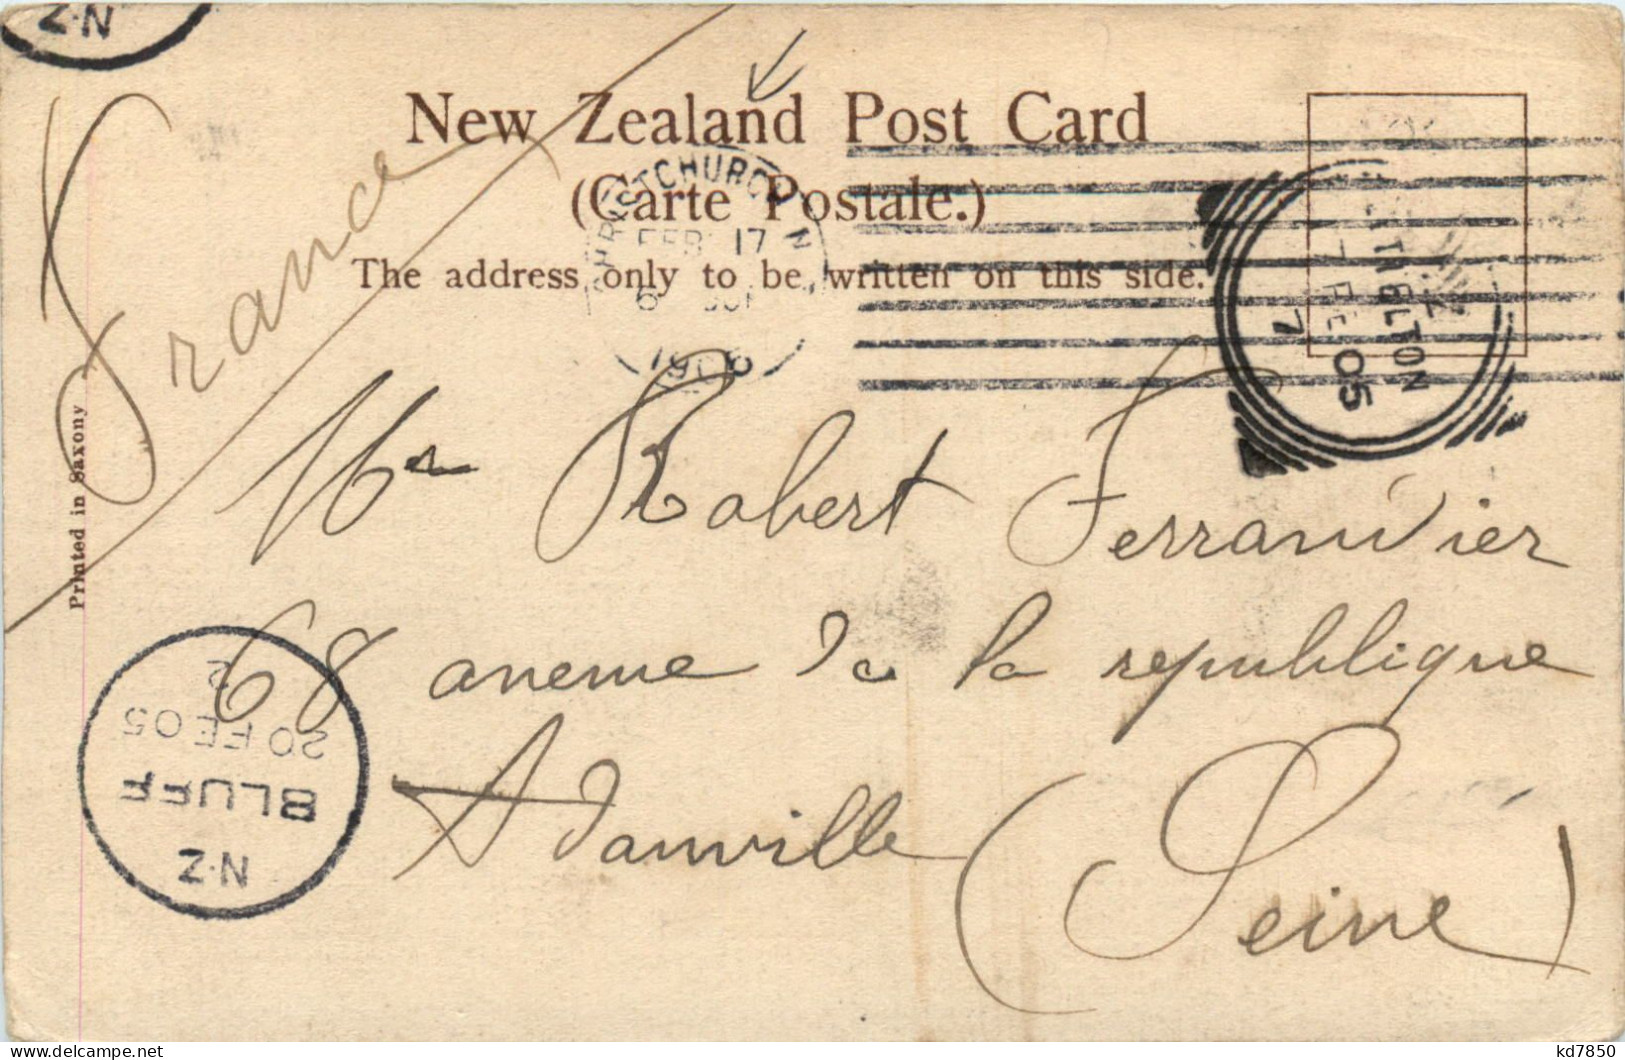 N·Z
New Zealand Post Card
(Carte Postale.)
The address only to be written on this side.
CHRISTCHURCH N
FEB 17
6
LYTTELTON
FE 05
7
France
Printed in Saxony
Mr Robert
68 avenue de la republique
(Seine)
2
20 FE 05
BLUFF
N·Z
kd7850